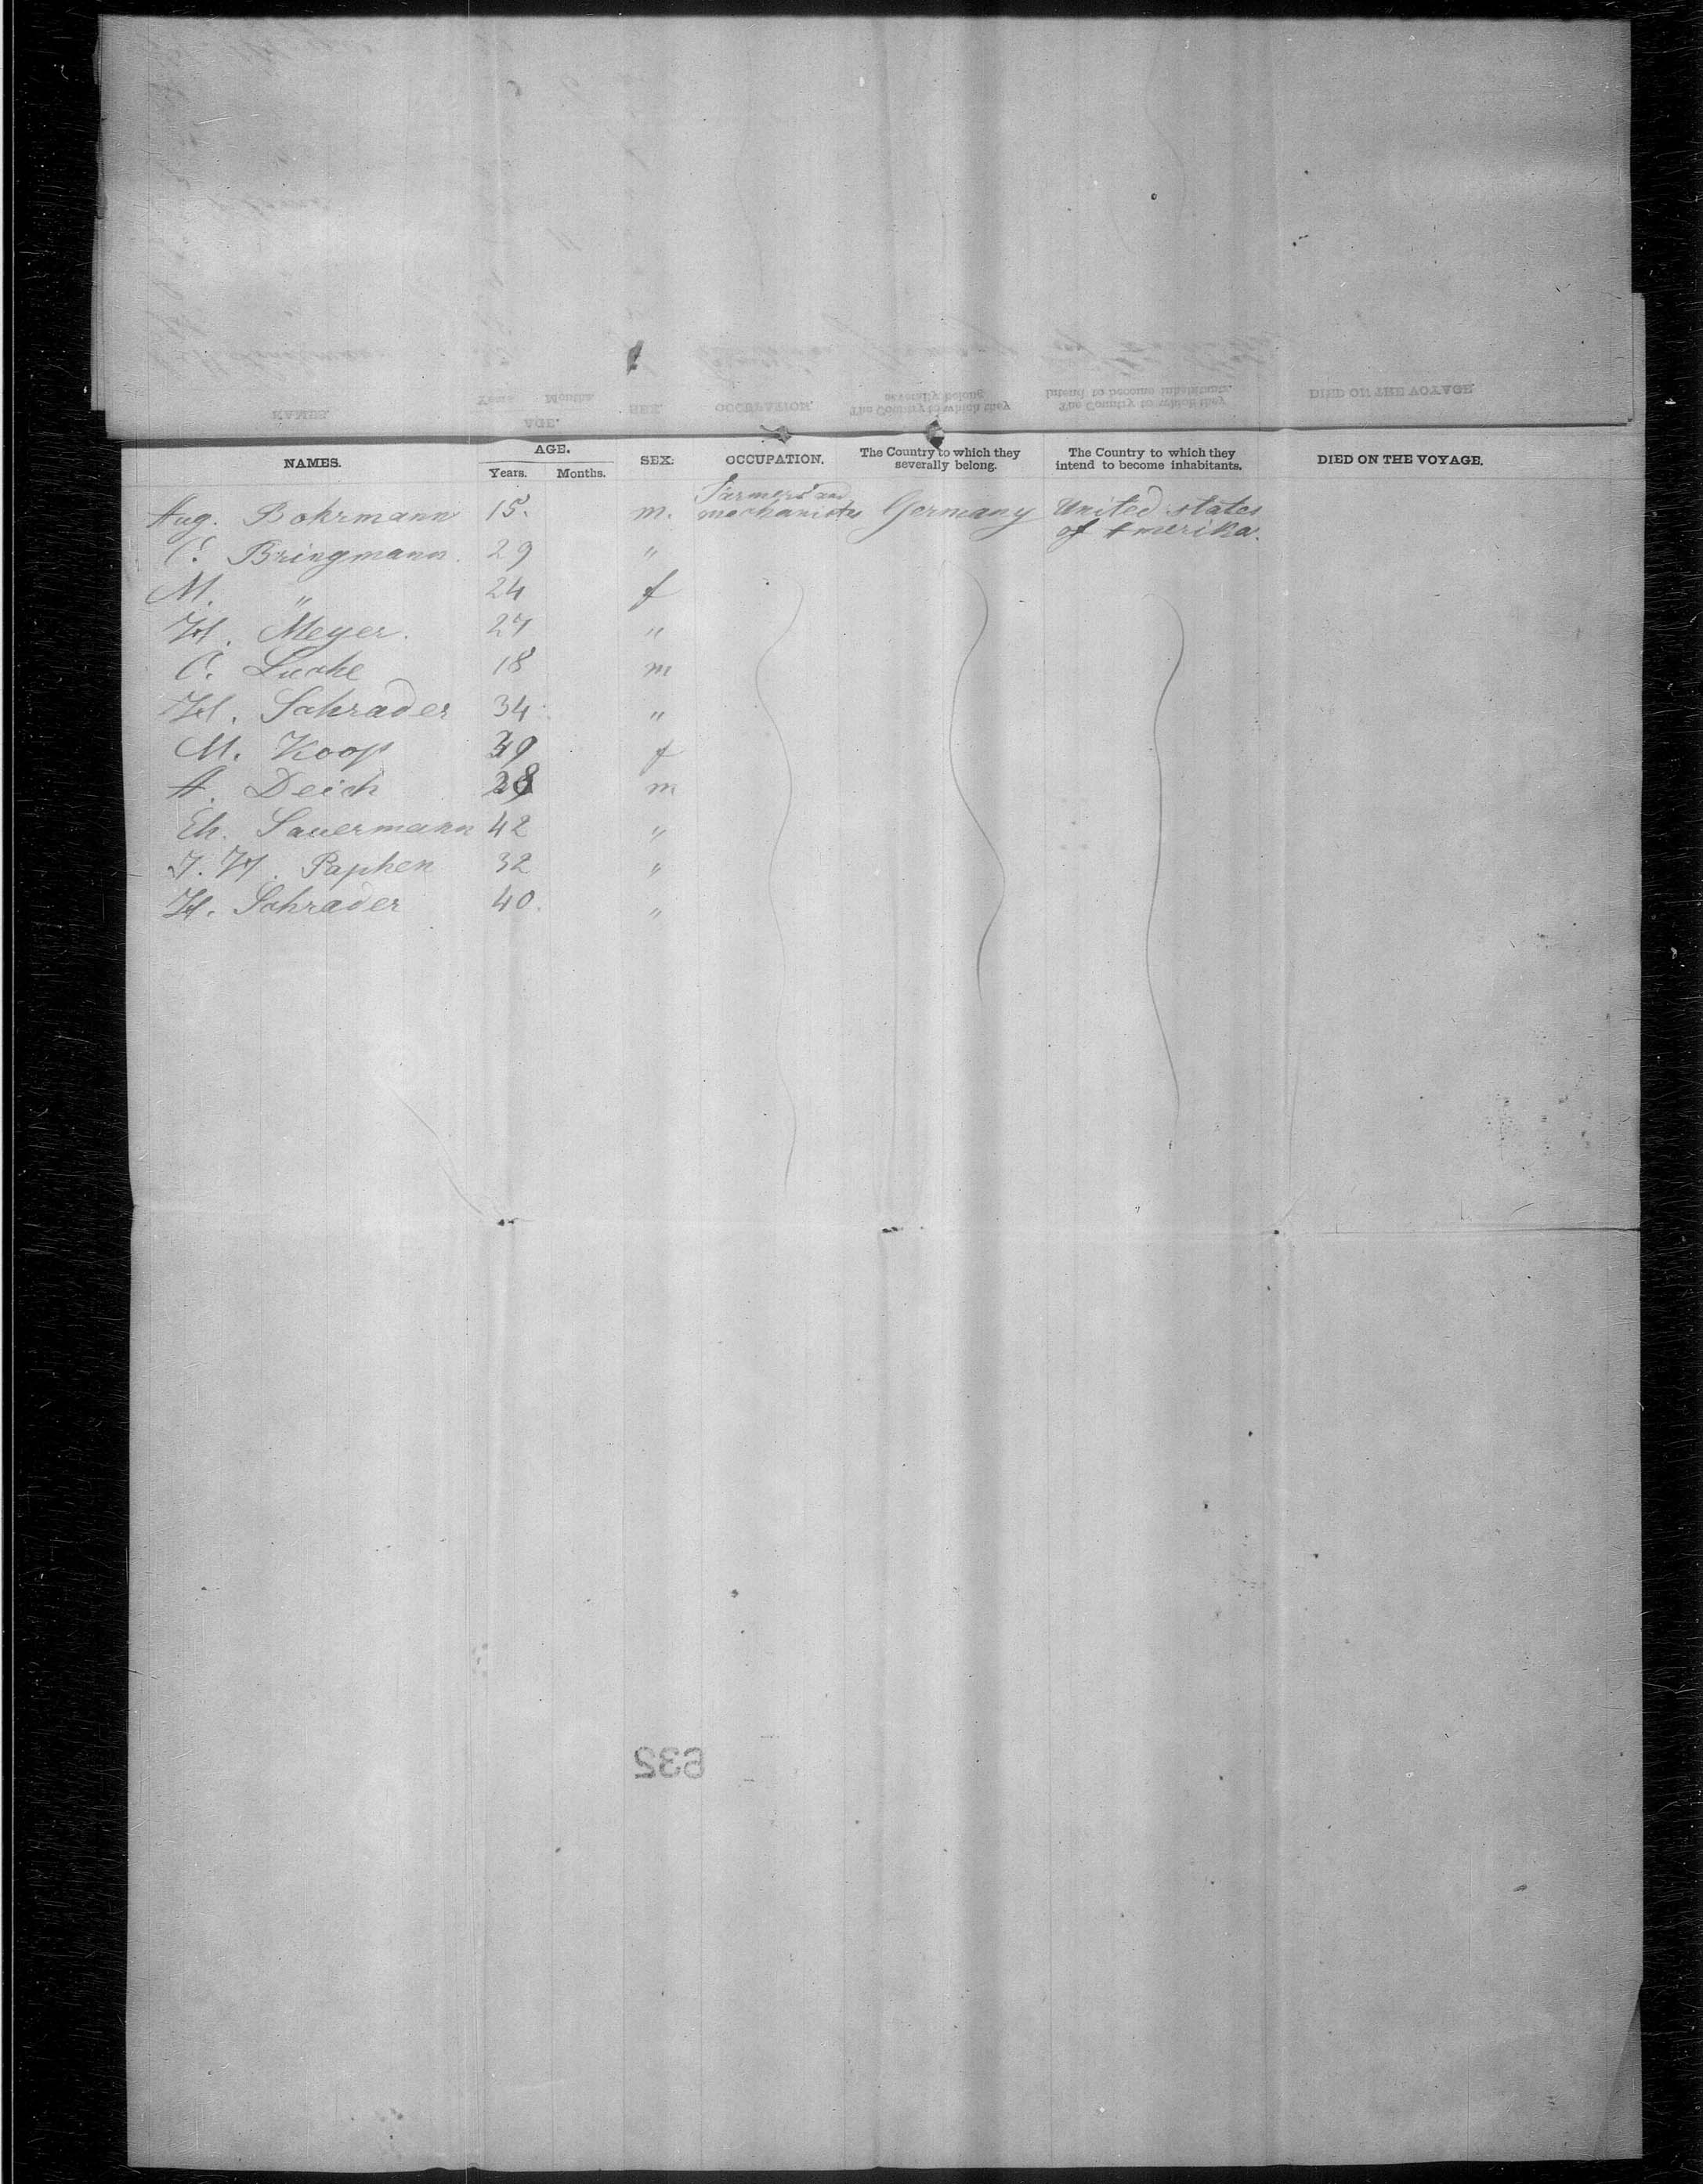 NAMES. AGE. Years. Months. SEX. OCCUPATION. The Country to which they severally belong. The Country to which they intend to become inhabitants. DIED ON THE VOYAGE.
Aug. Bohrmann 15. m. Farmers and mechanicks Germany United states of Amerika.
C. Bringmann. 29 "
M. " 24 f
H. Meyer. 27 "
C. Luche 18 m
H. Schrader 34 "
M. Koop 39 f
A. Deich 28 m
Eh. Sauermann 42 "
J. H. Paphen 32 "
H. Schrader 40. "
632